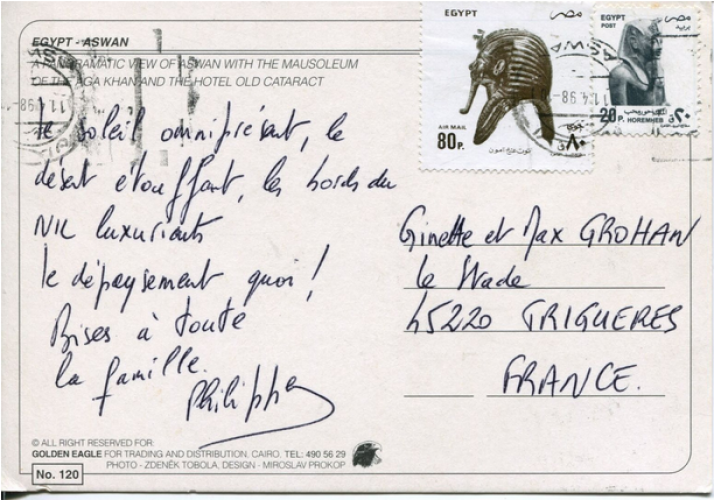 EGYPT - ASWAN
A PANORAMATIC VIEW OF ASWAN WITH THE MAUSOLEUM
OF THE AGA KHAN AND THE HOTEL OLD CATARACT
Le soleil omniprésent, le
désert étouffant, les bords du
NIL luxuriants
le dépaysement quoi !
Bises à toute
la famille.
Philippe
EGYPT مصر
AIR MAIL
80 P. ٨٠
توت عنخ آمون
EGYPT
POST
مصر
بريد
20 P. HOREMHEB ٢٠
ASWA
11.4.98
Ginette et Max GROHAN
Le Stade
45220 TRIGUERES
FRANCE.
© ALL RIGHT RESERVED FOR:
GOLDEN EAGLE FOR TRADING AND DISTRIBUTION, CAIRO, TEL: 490 56 29
PHOTO - ZDENĚK TOBOLA, DESIGN - MIROSLAV PROKOP
No. 120